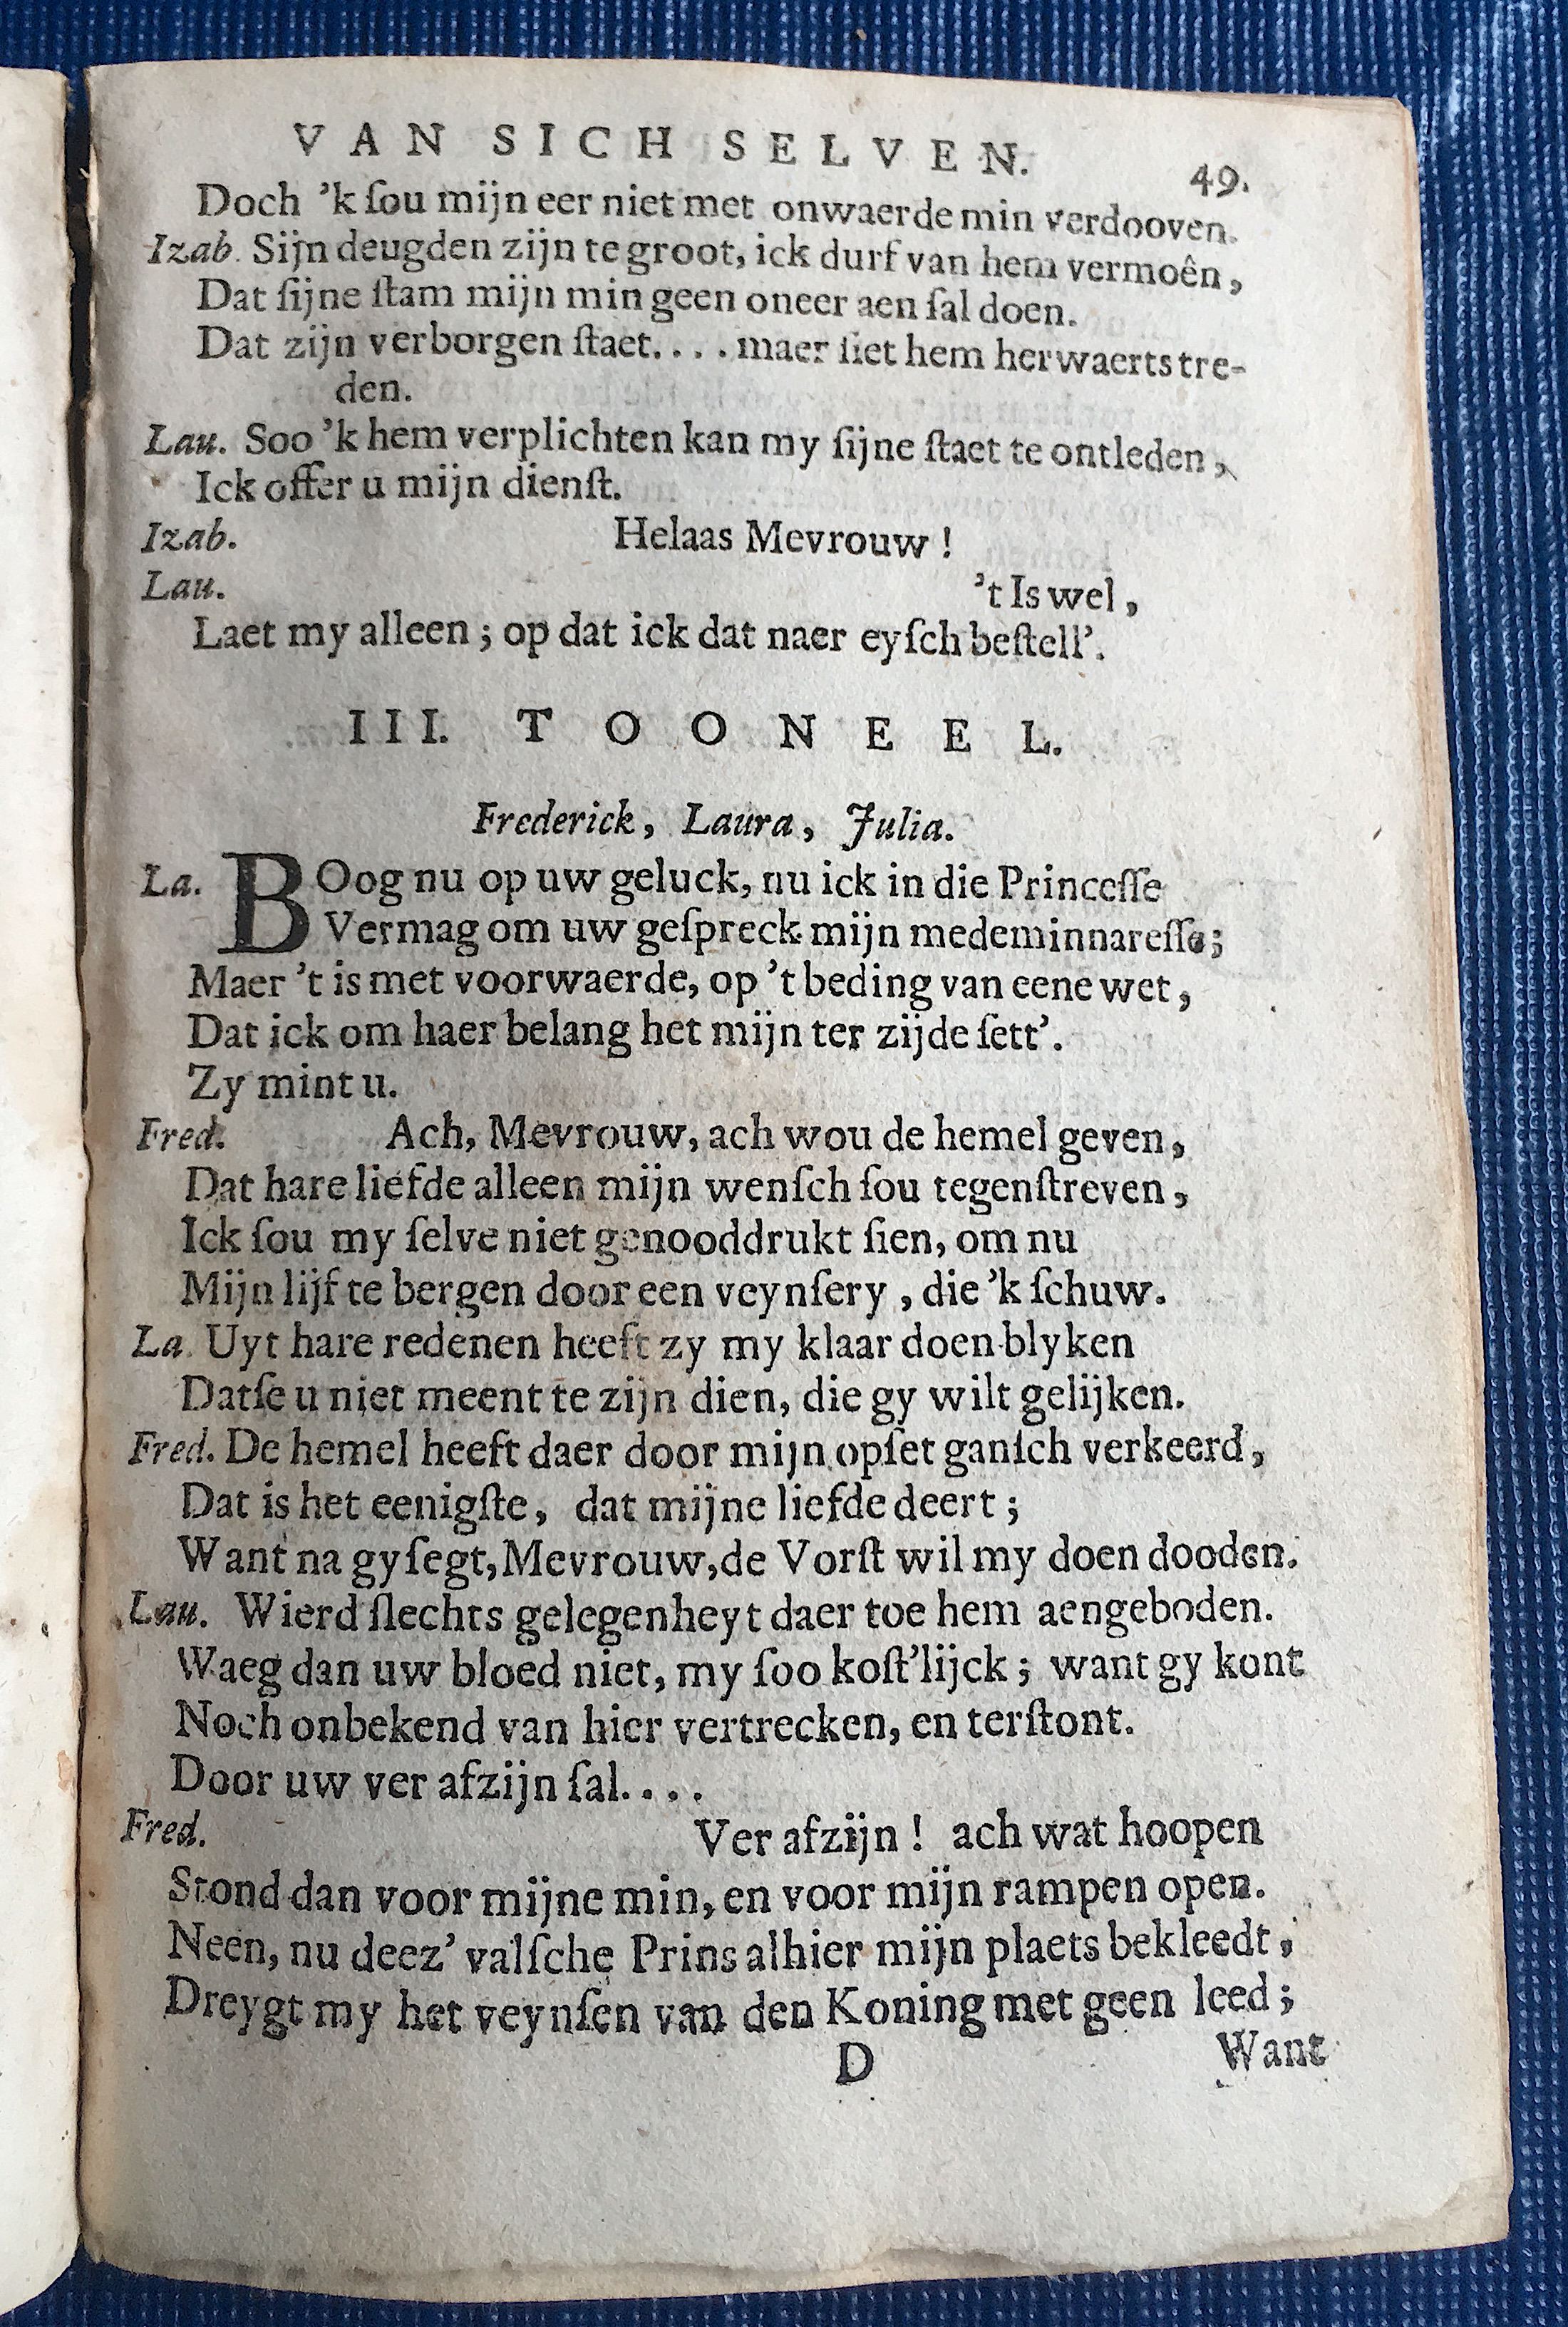 VAN SICH SELVEN. 49.
Doch ’k ſou mijn eer niet met onwaerde min verdooven.
Izab. Sijn deugden zijn te groot, ick durf van hem vermoên,
Dat ſijne ſtam mijn min geen oneer aen ſal doen.
Dat zijn verborgen ſtaet. . . . maer ſiet hem herwaerts tre-
den.
Lau. Soo ’k hem verplichten kan my ſijne ſtaet te ontleden,
Ick offer u mijn dienſt.
Izab. Helaas Mevrouw !
Lau. ’t Is wel,
Laet my alleen; op dat ick dat naer eyſch beſtell’.
III. TOONEEL.
Frederick, Laura, Julia.
La. BOog nu op uw geluck, nu ick in die Princeſſe
Vermag om uw geſpreck mijn medeminnareſſe;
Maer ’t is met voorwaerde, op ’t beding van eene wet,
Dat ick om haer belang het mijn ter zijde ſett’.
Zy mint u.
Fred. Ach, Mevrouw, ach wou de hemel geven,
Dat hare liefde alleen mijn wenſch ſou tegenſtreven,
Ick ſou my ſelve niet genooddrukt ſien, om nu
Mijn lijf te bergen door een veynſery, die ’k ſchuw.
La. Uyt hare redenen heeft zy my klaar doen blyken
Datſe u niet meent te zijn dien, die gy wilt gelijken.
Fred. De hemel heeft daer door mijn opſet ganſch verkeerd,
Dat is het eenigſte, dat mijne liefde deert;
Want na gy ſegt, Mevrouw, de Vorſt wil my doen dooden.
Lau. Wierd ſlechts gelegenheyt daer toe hem aengeboden.
Waeg dan uw bloed niet, my ſoo koſt’lijck; want gy kont
Noch onbekend van hier vertrecken, en terſtont.
Door uw ver afzijn ſal. . . .
Fred. Ver afzijn ! ach wat hoopen
Stond dan voor mijne min, en voor mijn rampen open.
Neen, nu deez’ valſche Prins alhier mijn plaets bekleedt,
Dreygt my het veynſen van den Koning met geen leed;
D Want